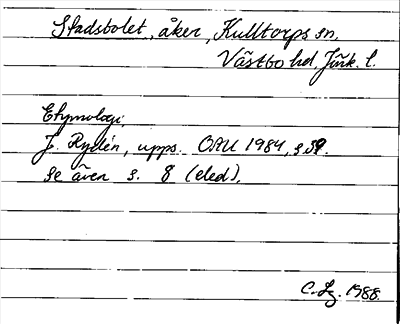 Stadsbolet, åker, Kulltorps sn.
Västbo hd, Jönk. l.
Etymologi:
J. Rydén, upps. OAU 1984, s. 59.
Se även s. 8 (eled).
C. Lg. 1988.